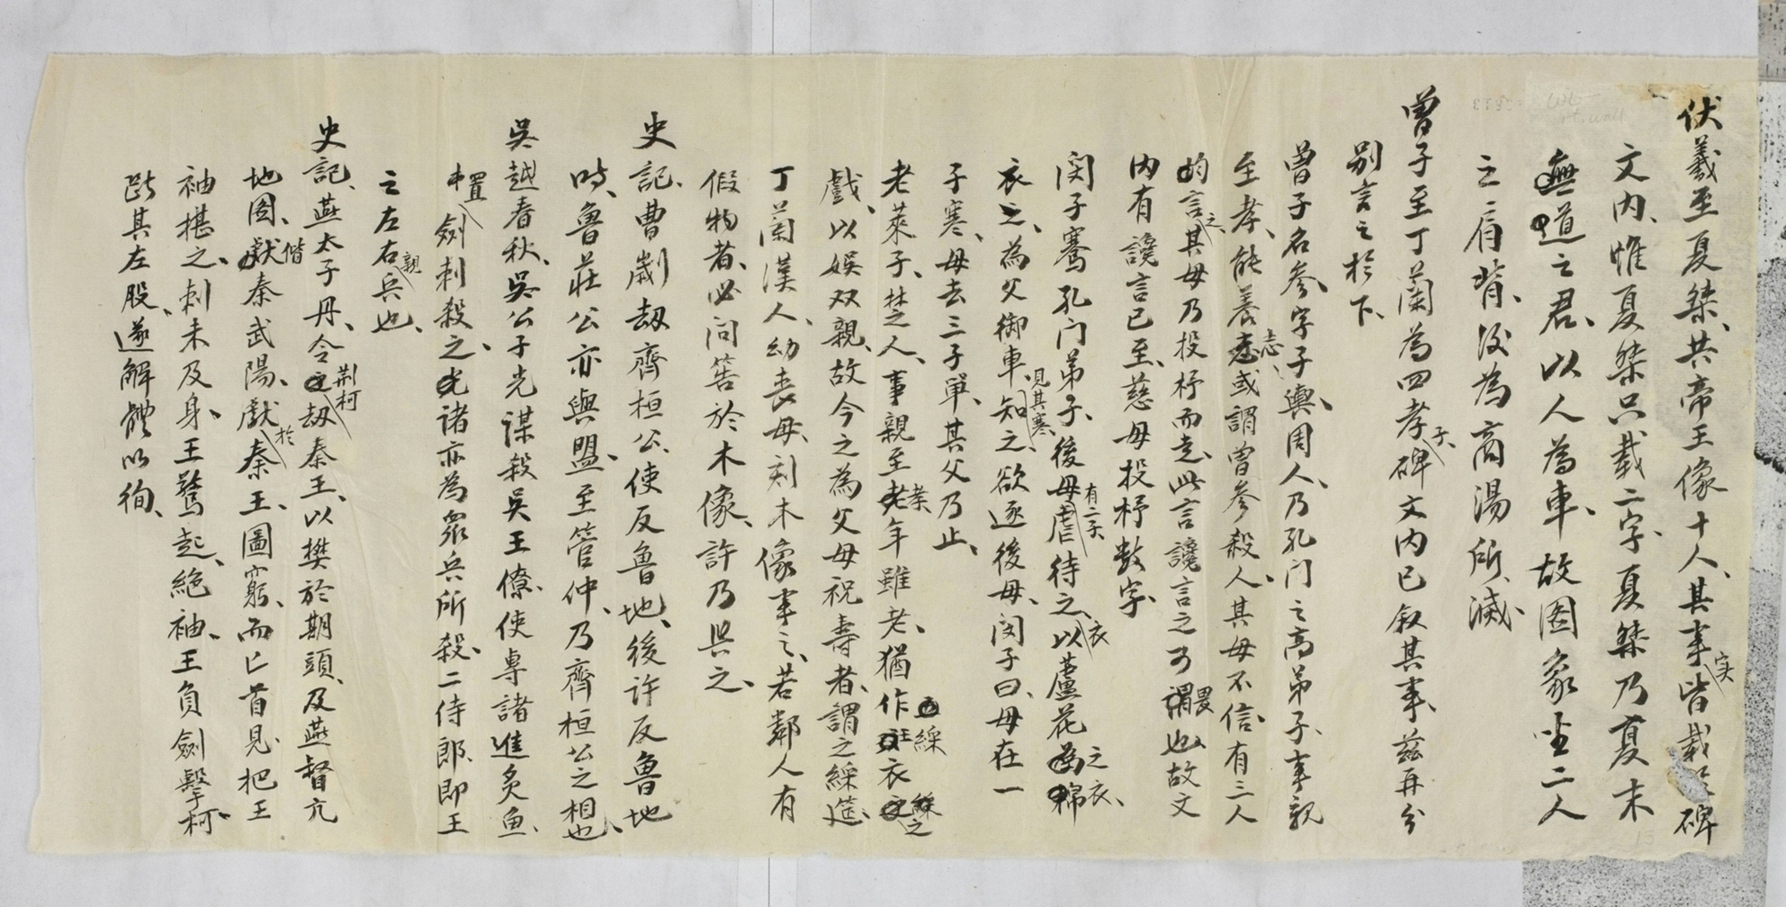 伏羲至夏桀、共帝王像十人、其事实皆載碑
文内、惟夏桀只載二字、夏桀乃夏末
無道之君、以人為車、故圖象坐二人
之肩背、後為商湯所滅、
曾子至丁蘭為四孝子、碑文内已叙其事、兹再分
别言之於下、
曾子名參字子輿、周人、乃孔门之高弟子、事親
至孝、能養志、或謂曾參殺人、其母不信、有三人
言之、其母乃投杼而走、此言讒言之可畏也、故文
内有讒言已至、慈母投杼數字、
闵子騫孔门弟子、後母有二子、虐待之、衣以蘆花之衣、
衣之、為父御車、見其寒、知之、欲逐後母、闵子曰、母在一
子寒、母去三子單、其父乃止、
老萊子、楚之人、事親至孝、年雖老、猶作綵衣之
戲、以娛双親、故今之為父母祝壽者、謂之綵筵、
丁蘭漢人、幼丧母、刻木像事之、若鄰人有
假物者、必问筶於木像、許乃与之、
史記、曹劌劫齊桓公、使反魯地、後許反魯地
時、魯莊公亦與盟、至管仲、乃齊桓公之相也、
吳越春秋、吳公子光謀殺吳王僚、使專諸進炙魚、
中置劍刺殺之、諸亦為眾兵所殺、二侍郎、即王
之左右親兵也、
史記、燕太子丹、令荆柯劫秦王、以樊於期頭、及燕督亢
地圖、偕秦武陽、獻於秦王、圖窮、而匕首見、把王
袖椹之、刺未及身、王驚起、絶袖、王負劍擊柯、
断其左股、遂解體以徇、